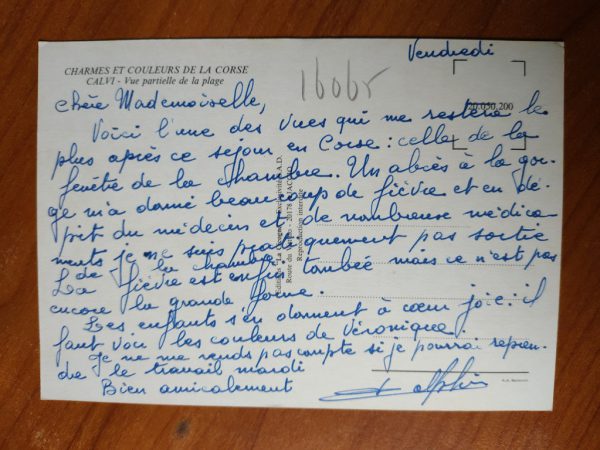 Vendredi
CHARMES ET COULEURS DE LA CORSE
CALVI - Vue partielle de la plage
160 br
20.050.200
Chère Mademoiselle,
Voici l'une des vues qui me restera le
plus après ce séjour en Corse : celle de la
fenêtre de la chambre. Un abcès à la gor-
ge m'a donné beaucoup de fièvre et en dé-
pit du médecin et de nombreuse médica
ments je ne suis pratiquement pas sortie
de la chambre.
La fièvre est enfin tombée mais ce n'est pas
encore la grande forme.
Les enfants s'en donnent à cœur joie : il
faut voir les couleurs de Véronique.
Je ne me rends pas compte si je pourrai repren-
dre le travail mardi
Bien amicalement
Route du - 20178 AJACCIO
Reproduction interdite